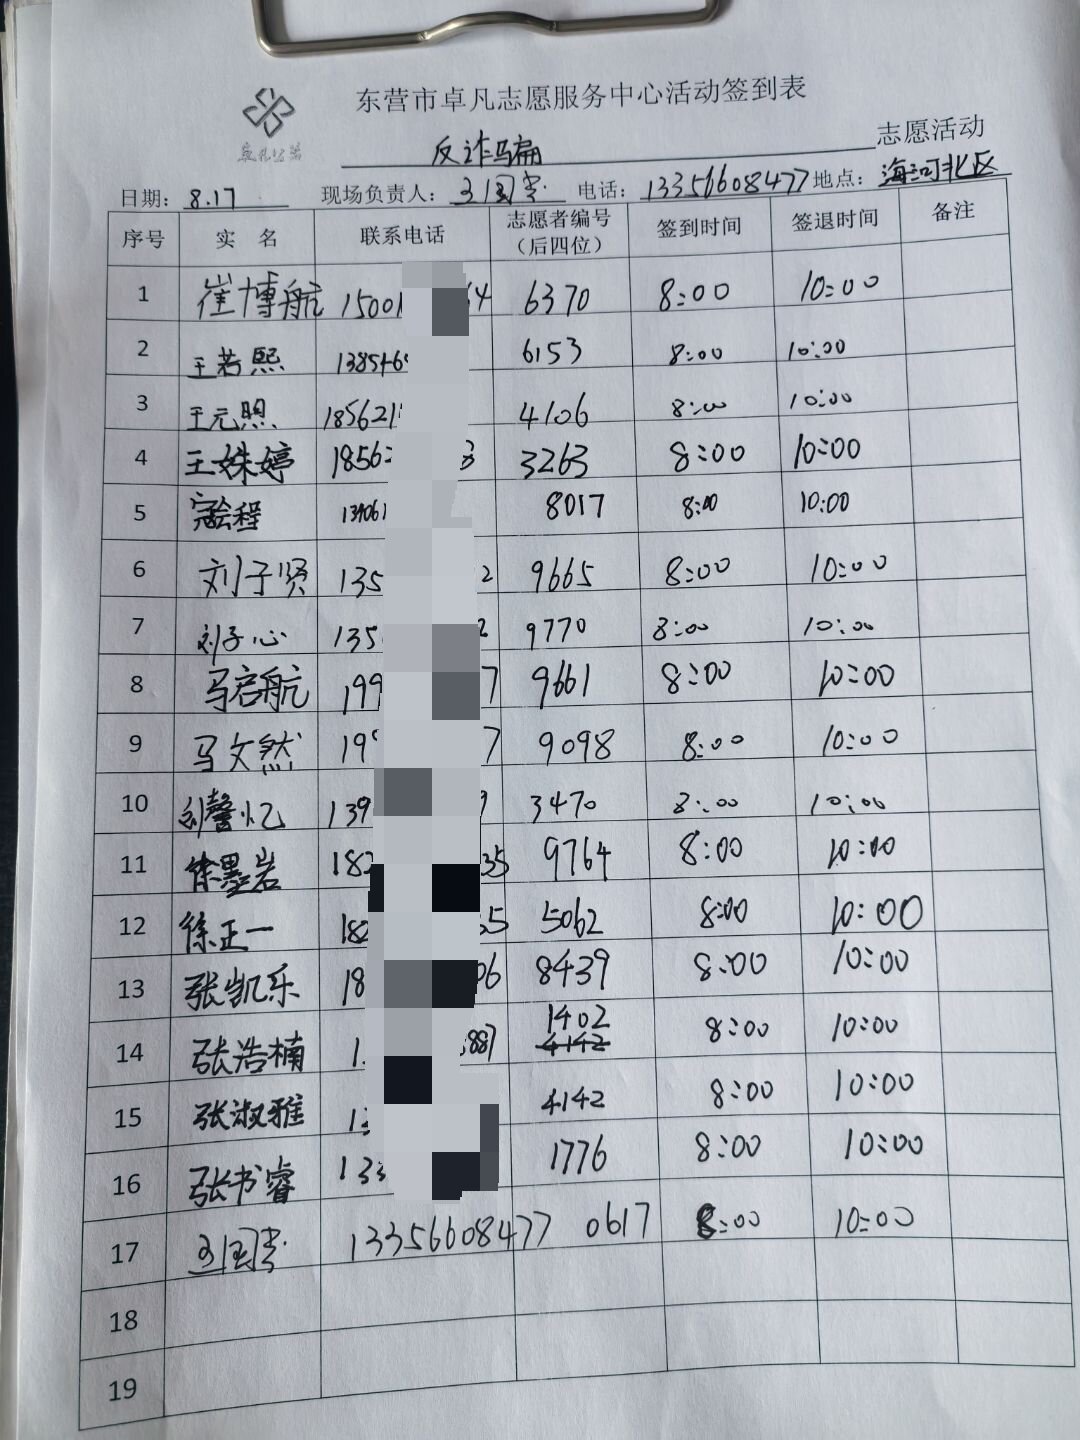 东营市卓凡志愿服务中心活动签到表
卓凡公益
反诈骗 志愿活动
日期: 8.17 现场负责人: 王国 电话: 13356608477 地点: 海河北区
序号 实 名 联系电话 志愿者编号（后四位） 签到时间 签退时间 备注
1 崔博航 15001 64 6370 8:00 10:00
2 王若熙 138546 6153 8:00 10:00
3 王元照 185621 4106 8:00 10:00
4 王姝婷 1856 3 3263 8:00 10:00
5 程 139061 8017 8:00 10:00
6 刘子贤 135 2 9665 8:00 10:00
7 刘子心 135 2 9770 8:00 10:00
8 马启航 199 7 9661 8:00 10:00
9 马文然 19 7 9098 8:00 10:00
10 刘馨忆 139 9 3470 8:00 10:00
11 徐墨岩 182 35 9764 8:00 10:00
12 徐正一 182 35 5062 8:00 10:00
13 张凯乐 18 06 8439 8:00 10:00
14 张浩楠 1 887 1402 4142 8:00 10:00
15 张淑雅 13 4142 8:00 10:00
16 张书睿 133 1776 8:00 10:00
17 王国 13356608477 0617 8:00 10:00
18
19